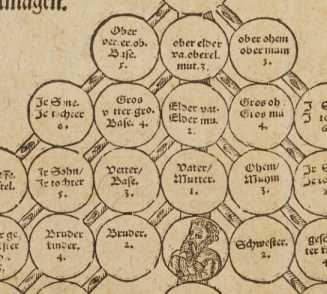 Ober
Base.
5.
ober elder
va. oberel.
mut. 3.
ober ohem
ober mum
5.
Je Sone.
Je tochter
6.
Gros
vetter gro.
Base. 4.
Elder vat.
Elder mu.
2.
Gros oh
Gros mu
4.
Je Sohn/
Je tochter
5.
Vetter/
Base.
3.
Vater/
Mutter.
1.
Ohem/
Muhm
3.
Bruder
kinder.
4.
Bruder.
2.
Schwester.
2.